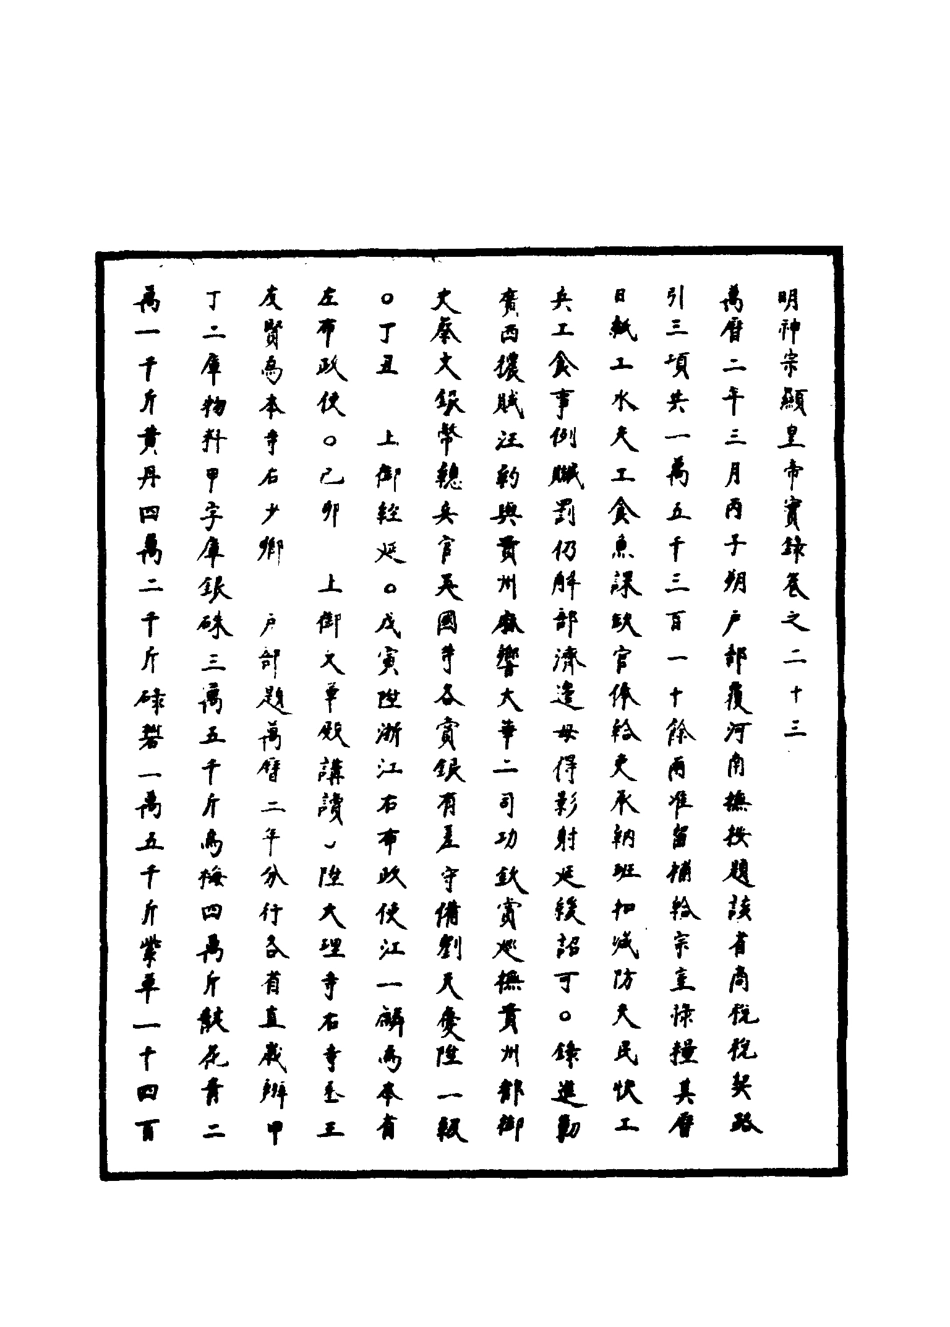 明神宗顯皇帝實錄卷之二十三
萬曆二年三月丙子朔戶部覆河南撫按題該省商稅稅契路
引三項共一萬五千三百一十餘兩准留補給宗室祿糧其曆
日紙工水夫工食魚課缺官俸給吏承納班扣減防夫民快工
兵工食事例贓罰仍解部濟邊毋得影射延緩詔可○錄進勦
廣西獞賊汪豹與貴州麻響大華二司功欽賞巡撫貴州都御
史蔡文銀幣總兵官吳國等各賞銀有差守備劉天慶陞一級
○丁丑 上御經筵○戊寅陞浙江右布政使江一麟為本省
左布政使○己卯 上御文華殿講讀、陞大理寺右寺丞王
友賢為本寺右少卿 戶部題萬曆二年分行各省直歲辦甲
丁二庫物料甲字庫銀硃三萬五千斤烏梅四萬斤靛花青二
萬一千斤黃丹四萬二千斤碌礬一萬五千斤紫草一千四百